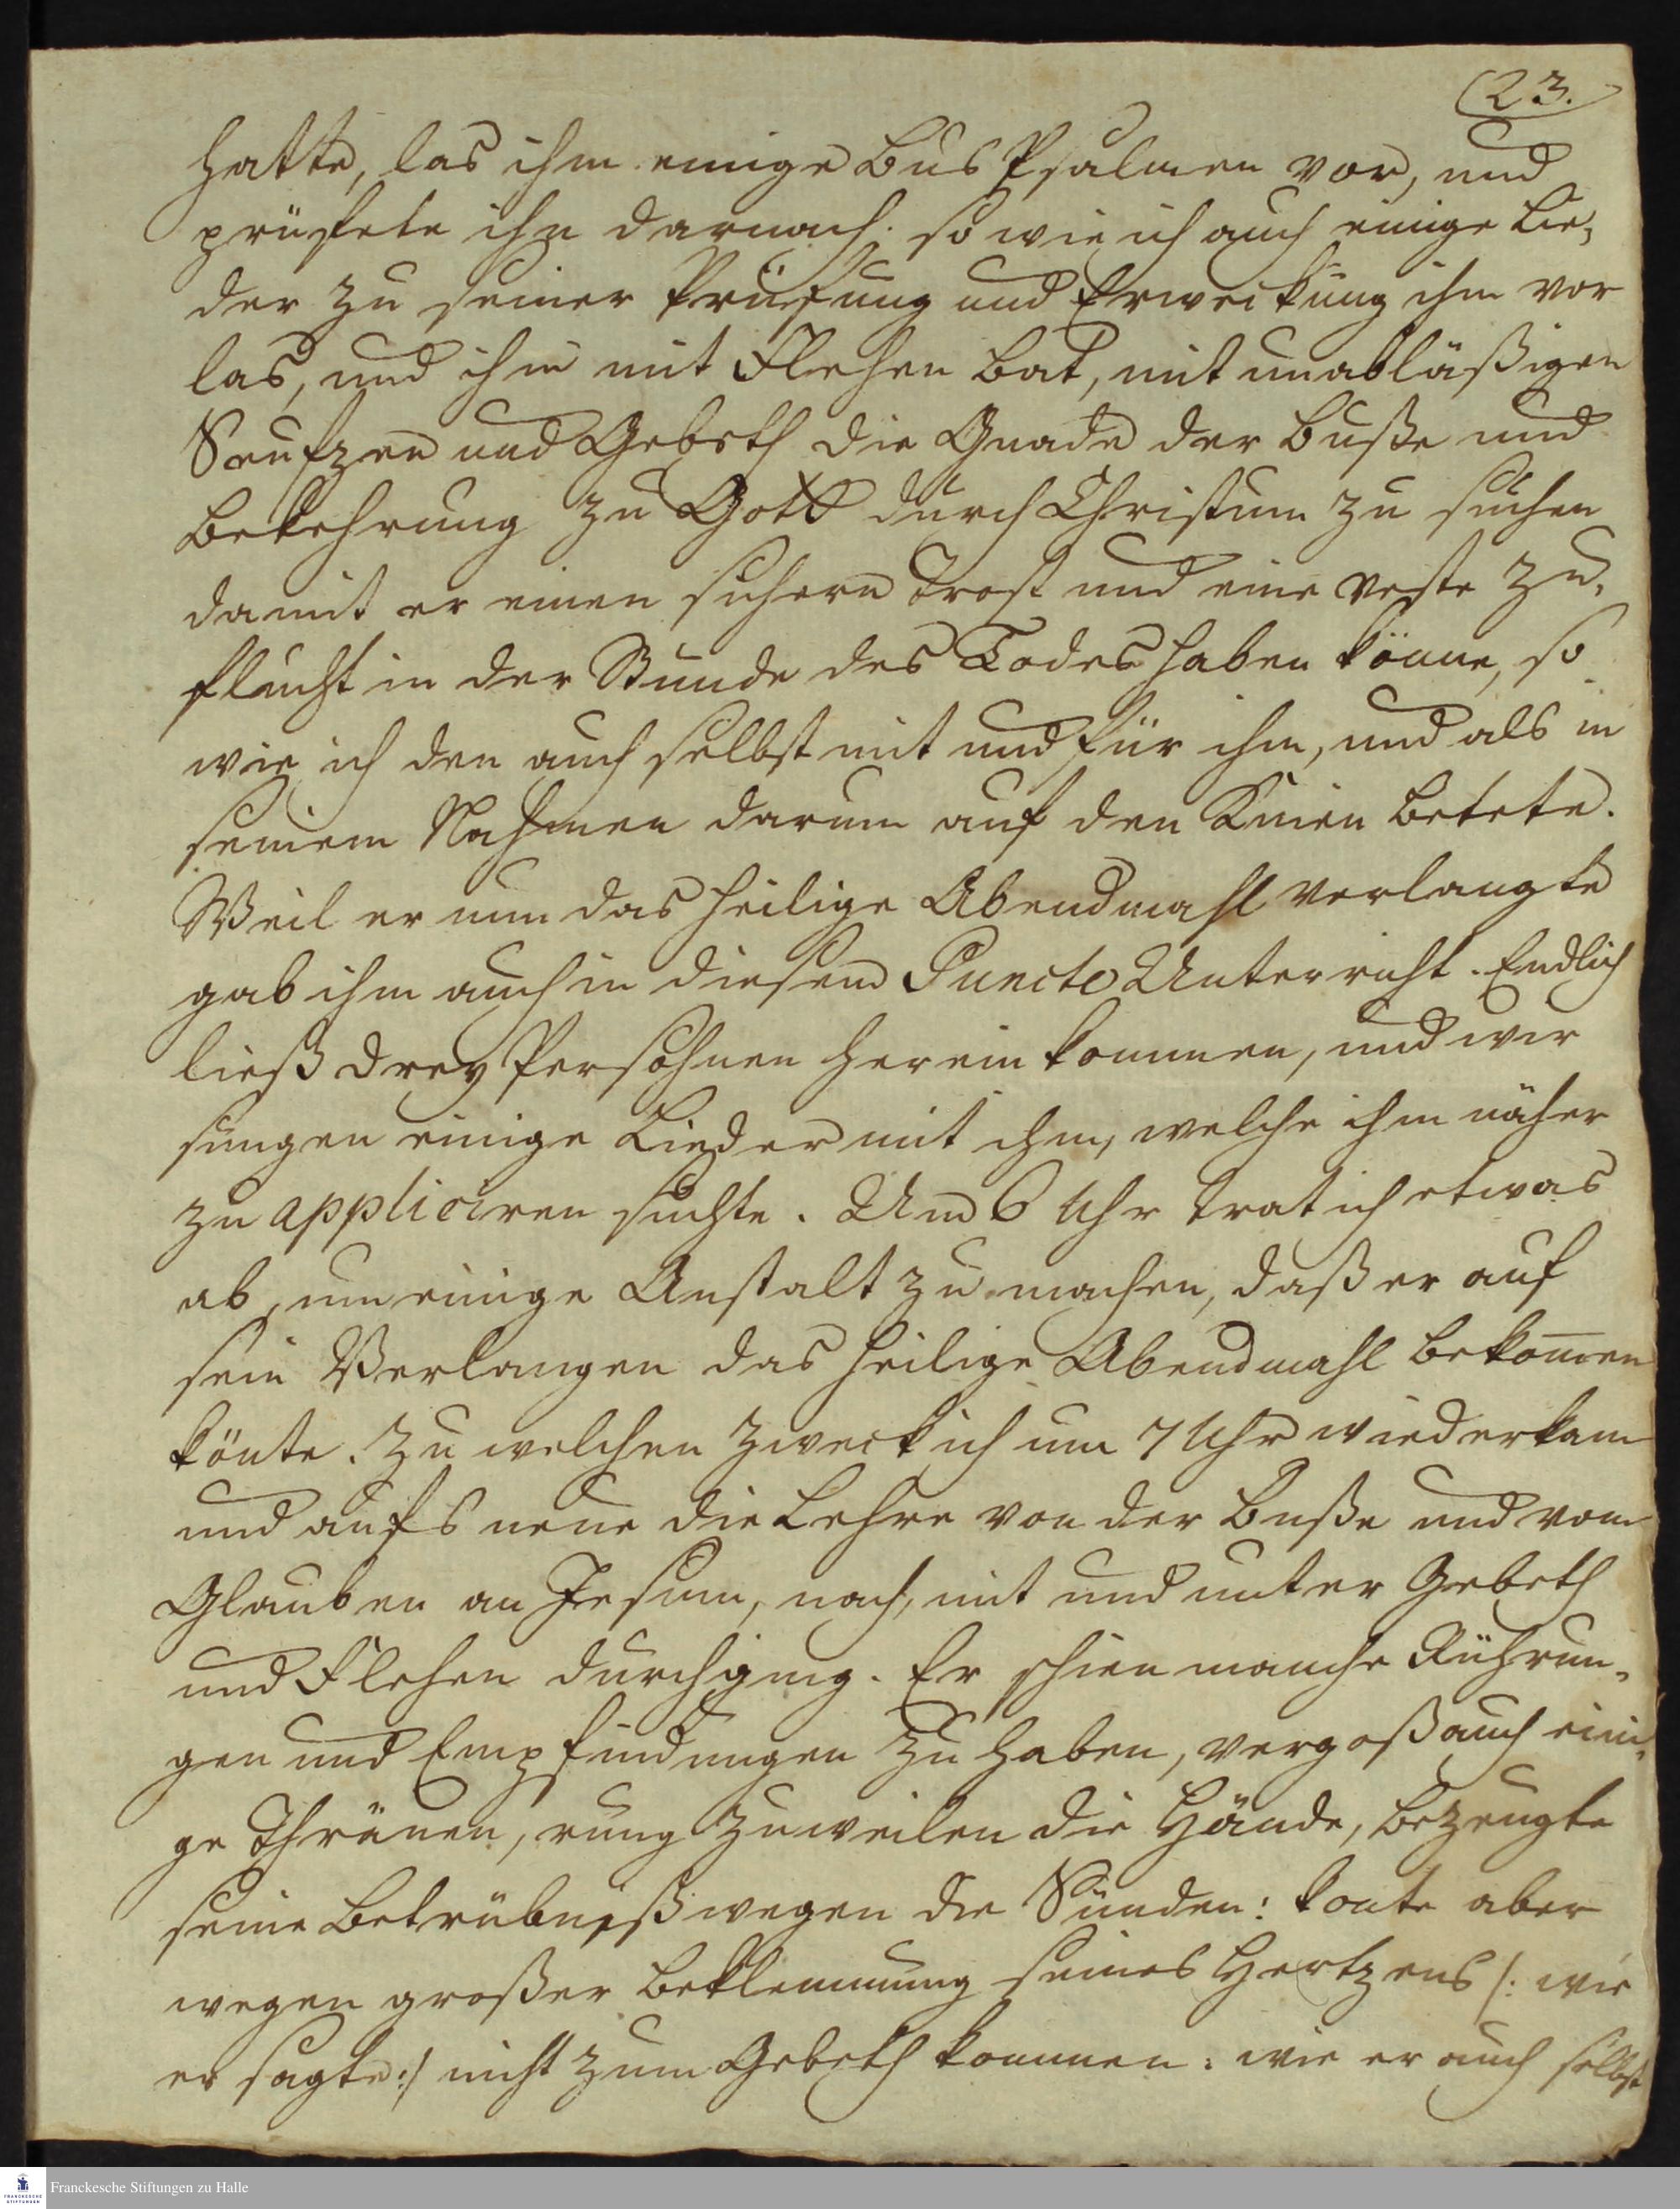 23.
hatte, las ihm einige Bus Psalmen vor, und
prüfete ihn darnach: so wie ich auch einige Lie,
der zu seiner Prüfung und Erweckung ihm vor
las, und ihm mit Flehen bat, mit unabläßigen
Seufzen und Gebeth die Gnade der Buße und
Bekehrung zu Gott durch Christum zu suchen
damit er einen sichern Trost und eine veste Zu,
flucht in der Stunde des Todes haben könne, so
wie ich den auch selbst mit und für ihm, und als in
seinem Nahmen darum auf den Knien betete.
Weil er nun das heilige Abendmahl verlangte
gab ihm auch in diesem Puncto Unterricht. Endlich
ließ drey Persohnen herein kommen, und wir
sungen einige Lieder mit ihm, welche ihm näher
zu appliciren suchte. Um 6 Uhr trat ich etwas
ab, um einige Anstalt zu machen, daß er auf
sein Verlangen das heilige Abendmahl bekom̅en
könte. Zu welchen Zweck ich um 7 Uhr wiederkam
und aufs neue die Lehre von der Buße und vom
Glauben an Jesum, nach, mit und unter Gebeth
und Flehen durchging. Er schien manche Rührun,
gen und Empfindungen zu haben, vergoß auch eini,
ge Thränen, rung zuweilen die Hände, bezeugte
seine Betrübniß wegen die Sünden: konte aber
wegen großer Beklemmung seines Hertzens /: wie
er sagte :/ nicht zum Gebeth kommen: wie er auch selbst
Franckesche Stiftungen zu Halle